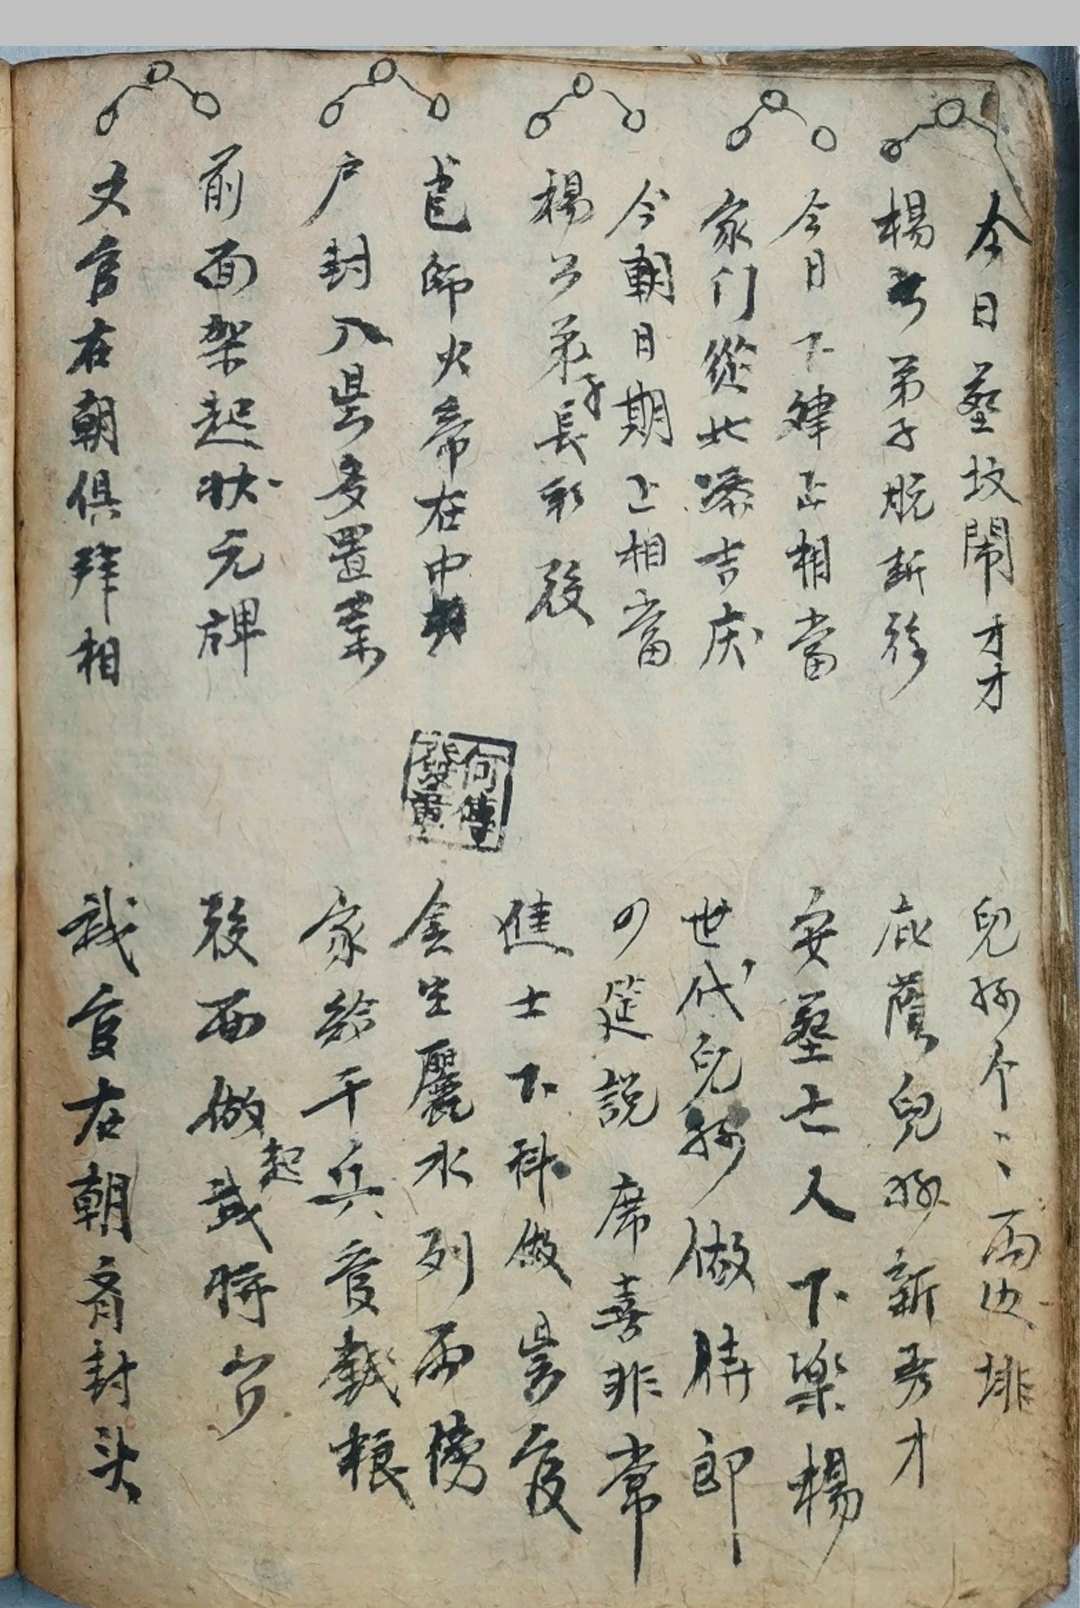 今日塟坟鬧秀才
兒孫个〻兩边排
楊公弟子脱新衫
庇䕃兒孫新秀才
今日下肂正相當
安塟亡人下樂楊
家门從此添吉庆
世代兒孙做時郎
今朝日期正相當
の筵説席喜非常
楊公弟子長彩殺
進士下科做县官
邑師火帝在中
金生麗水列兩傍
户封八县多置業
家給千兵官載粮
前面架起状元牌
殺面做起武將
文官右朝俱拜相
武官左朝斉封头
何傳
發